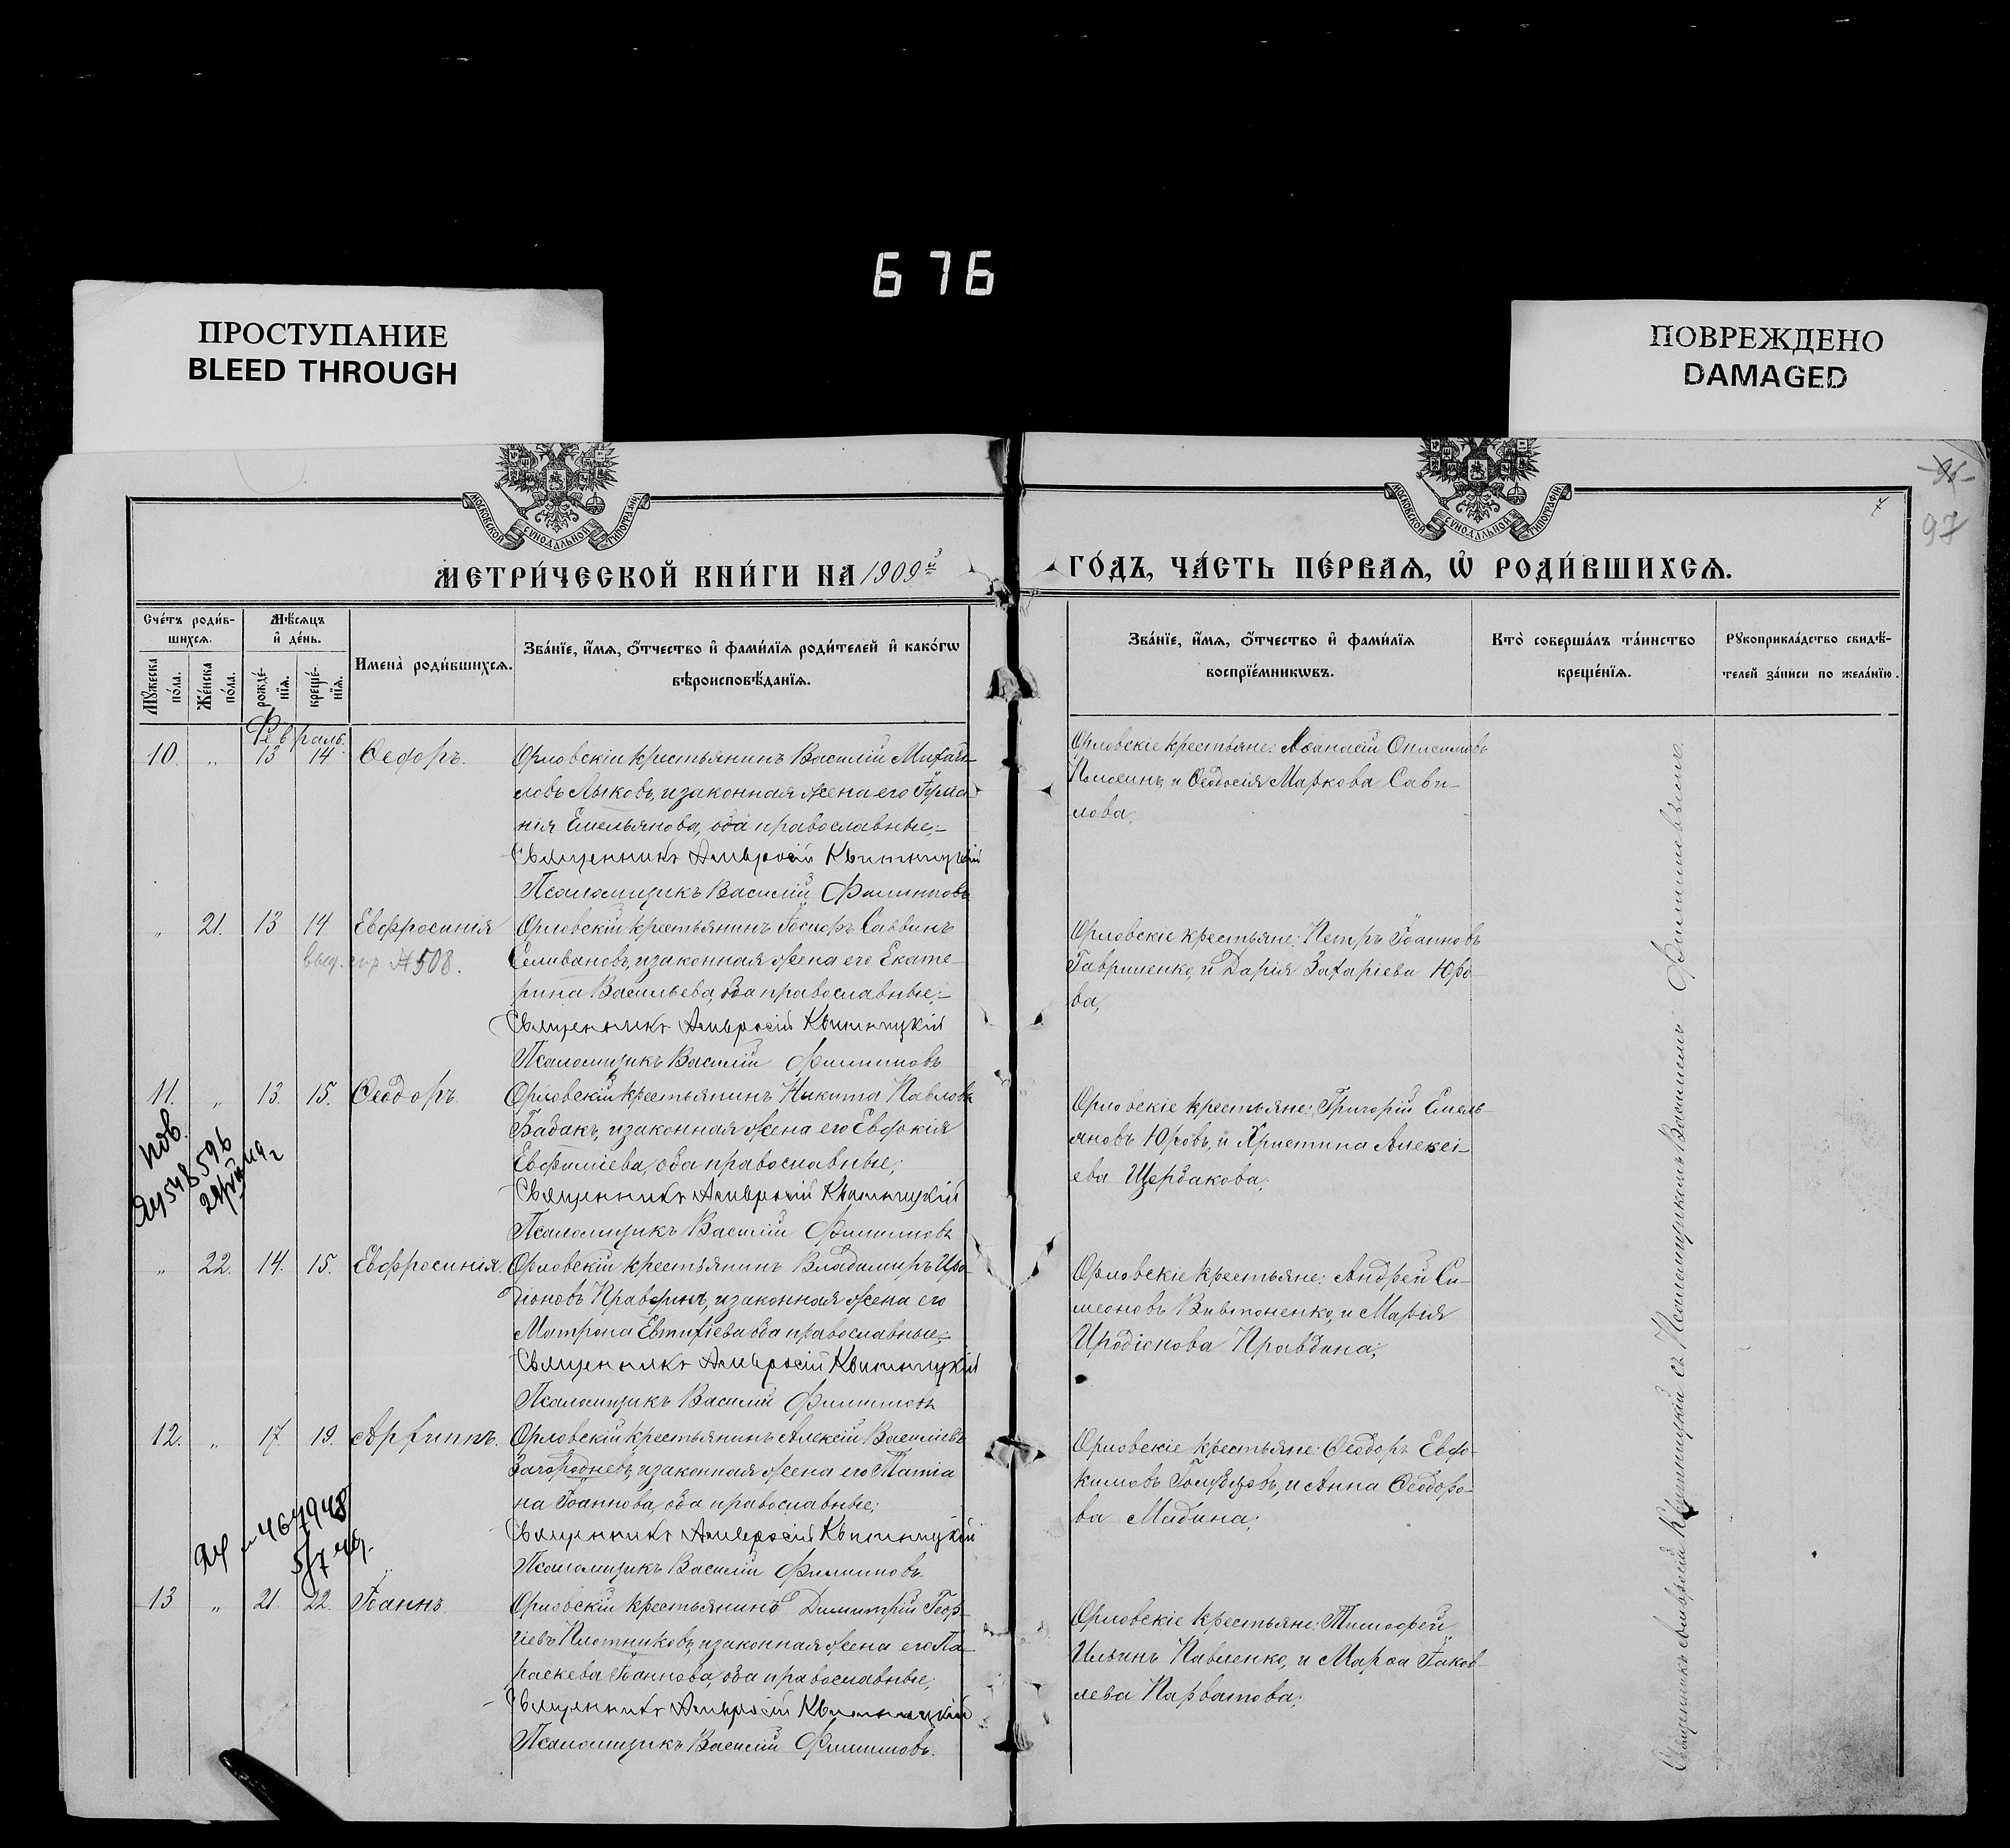 676
ПРОСТУПАНИЕ
BLEED THROUGH
ПОВРЕЖДЕНО
DAMAGED
МОСКОВСКОЙ СѴНОДАЛЬНОЙ ТИПОГРАФІИ
МОСКОВСКОЙ СѴНОДАЛЬНОЙ ТИПОГРАФІИ
97
МЕТРИ́ЧЕСКОЙ КНИ́ГИ НА 1909й
ГО́ДЪ, ЧА́СТЬ ПЕ́РВАѦ, Ѡ҆ РОДИ́ВШИХСѦ.
Сче́тъ роди́в-
шихсѧ.
Мѣ́сѧцъ
и҆ де́нь.
Мꙋ́жеска по́ла.
Же́нска по́ла.
рожде́-
нїѧ.
креще́-
нїѧ.
Имена̀ роди́вшихсѧ.
Зва́нїе, и҆́мѧ, ѻ҆́тчество и҆ фами́лїѧ роди́телей и҆ како́гѡ
вѣроисповѣ́данїѧ.
Зва́нїе, и҆́мѧ, ѻ҆́тчество и҆ фами́лїѧ
воспрїе́мникѡвъ.
Кто̀ соверша́лъ та́инство
креще́нїѧ.
Рꙋкоприкла́дство свидѣ́-
телей за́писи по жела́нїю.
Февраль.
10. „ 13 14 Ѳеодоръ.
Орловскій крестьянинъ Василій Михай-
ловъ Лыковъ, и законная жена его Іулиа
нія Емельянова, оба православные;
Священникъ Амвросій Квитницкій
Псаломщикъ Василій Филипповъ
Орловскіе крестьяне: Аѳанасій Онисимовъ
и Ѳеодосія Маркова Сави-
лова;
„ 21. 13 14 Евфросинія
выд. А 508.
Орловскій крестьянинъ Іосифъ Саввинъ
Селивановъ, и законная жена его Екате-
рина Васильева, оба православные;
Священникъ Амвросій Квитницкій
Псаломщикъ Василій Филипповъ
Орловскіе крестьяне: Петръ Іоанновъ
Гавриленко, и Дарія Захаріева Юро-
ва,
11. „ 13. 15. Ѳеодоръ.
пов.
548596
Орловскій крестьянинъ Никита Павловъ
Бабакъ, и законная жена его Евдокія
Евфиміева, оба православные;
Священникъ Амвросій Квитницкій
Псаломщикъ Василій Филипповъ
Орловскіе крестьяне: Григорій Емель-
яновъ Юровъ, и Христина Алексі-
ева Щербакова;
„ 22. 14. 15. Евфросинія.
Орловскій крестьянинъ Владиміръ Иро-
діоновъ Правдинъ, и законная жена его
Матрона Евтихіева оба православные;
Священникъ Амвросій Квитницкій
Псаломщикъ Василій Филипповъ
Орловскіе крестьяне: Андрей Си-
меоновъ Вивтоненко, и Марія
Иродіонова Правдина;
12. „ 17. 19. Архиппъ.
467948
5/7 49.
Орловскій крестьянинъ Алексій Василіевъ
Загородневъ, и законная жена его Татіа
на Іоаннова, оба православные;
Священникъ Амвросій Квитницкій
Псаломщикъ Василій Филипповъ
Орловскіе крестьяне: Ѳеодоръ Евдо-
кимовъ Голубцовъ, и Анна Ѳеодоро-
ва Мадина;
13 „ 21. 22. Іоаннъ.
Орловскій крестьянинъ Димитрій Геор-
гіевъ Плотниковъ, и законная жена его Па-
раскева Іоаннова, оба православные;
Священникъ Амвросій Квитницкій
Псаломщикъ Василій Филипповъ.
Орловскіе крестьяне: Тимофей
Ильинъ Павленко, и Марѳа Іаков-
лева Парватова;
Священникъ Амвросій Квитницкій съ Псаломщикомъ Василіемъ Филипповымъ.